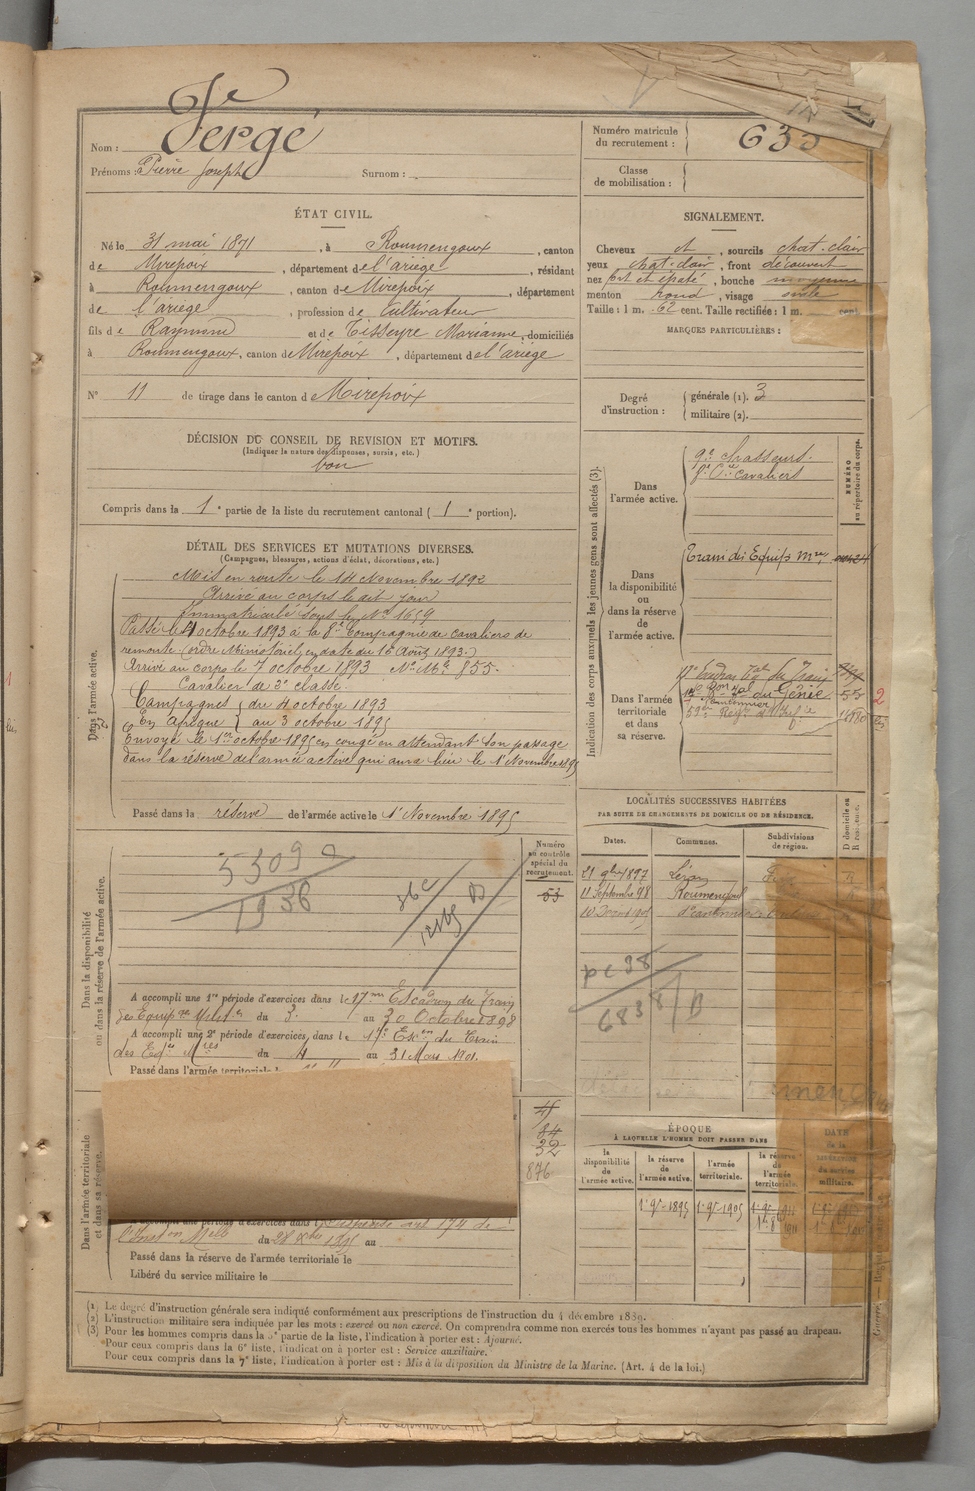 Nom : Fergé
Prénoms : Pierre Joseph Surnom :
Numéro matricule du recrutement : 633
Classe de mobilisation :
ÉTAT CIVIL.
Né le 31 mai 1871, à Roumengoux, canton
de Mirepoix, département de l'ariège, résidant
à Roumengoux, canton de Mirepoix, département
de l'ariège, profession de Cultivateur
fils de Raymond et de Tisseyre Marianne, domiciliés
à Roumengoux, canton de Mirepoix, département de l'ariège
N° 11 de tirage dans le canton de Mirepoix
SIGNALEMENT.
Cheveux et, sourcils chat-clair
yeux chat-clair, front découvert
nez fort et épaté, bouche moyenne
menton rond, visage ovale
Taille : 1 m. 62 cent. Taille rectifiée : 1 m. cent.
MARQUES PARTICULIÈRES :
Degré d'instruction : générale (1). 3
militaire (2).
DÉCISION DU CONSEIL DE REVISION ET MOTIFS.
(Indiquer la nature des dispenses, sursis, etc.)
bon
Compris dans la 1e partie de la liste du recrutement cantonal (1e portion).
DÉTAIL DES SERVICES ET MUTATIONS DIVERSES.
(Campagnes, blessures, actions d'éclat, décorations, etc.)
Dans l'armée active.
Mis en route le 14 Novembre 1892
Arrivé au corps le dit jour
Immatriculé sous le No 1659
Passé le 4 octobre 1893 à la 8e Compagnie de cavaliers de
remonte (ordre Ministériel en date du 1er Août 1893.)
Arrivé au corps le 7 octobre 1893 No Mle 855.
Cavalier de 2e classe.
Campagnes du 4 octobre 1893
En Afrique au 3 octobre 1895
Envoyé le 1er octobre 1895 en congé en attendant son passage
dans la réserve de l'armée active qui aura lieu le 1er Novembre 1895
Passé dans la réserve de l'armée active le 1er Novembre 1895
Indication des corps auxquels les jeunes gens sont affectés (3).
NUMÉRO au répertoire du corps.
Dans l'armée active.
9e Chasseurs.
8e Cie Cavaliers
Dans la disponibilité ou dans la réserve de l'armée active.
Train des Equip. Mres
Dans l'armée territoriale et dans sa réserve.
17e Escadron Tal du Train
du Génie
2
LOCALITÉS SUCCESSIVES HABITÉES
PAR SUITE DE CHANGEMENTS DE DOMICILE OU DE RÉSIDENCE.
Dates. Communes. Subdivisions de région. D domicile ou R résidence.
21 9bre 1897 Léran Foix
11 Septembre 98 Roumengoux
Dans la disponibilité ou dans la réserve de l'armée active.
Numéro au contrôle spécial du recrutement.
53
5309
1936
pc 38
6838 D
A accompli une 1re période d'exercices dans le 17me Escadron du Train
des Equip. du 3 au 30 Octobre 1898
A accompli une 2e période d'exercices dans le 17e Esc. du Train
des Eq. Mres du 4 au 31 Mars 1901.
Passé dans l'armée territoriale le
Dans l'armée territoriale et dans sa réserve.
84
32
876
ÉPOQUE
À LAQUELLE L'HOMME DOIT PASSER DANS
la disponibilité de l'armée active. la réserve de l'armée active. l'armée territoriale. la réserve de l'armée territoriale. DATE de la libération du service militaire.
1er 9bre 1895 1er 9bre 1905
A accompli une période d'exercices dans l
du au
Passé dans la réserve de l'armée territoriale le
Libéré du service militaire le
(1) Le degré d'instruction générale sera indiqué conformément aux prescriptions de l'instruction du 4 décembre 1889.
(2) L'instruction militaire sera indiquée par les mots : exercé ou non exercé. On comprendra comme non exercés tous les hommes n'ayant pas passé au drapeau.
(3) Pour les hommes compris dans la 5e partie de la liste, l'indication à porter est : Ajourné.
Pour ceux compris dans la 6e liste, l'indication à porter est : Service auxiliaire.
Pour ceux compris dans la 7e liste, l'indication à porter est : Mis à la disposition du Ministre de la Marine. (Art. 4 de la loi.)